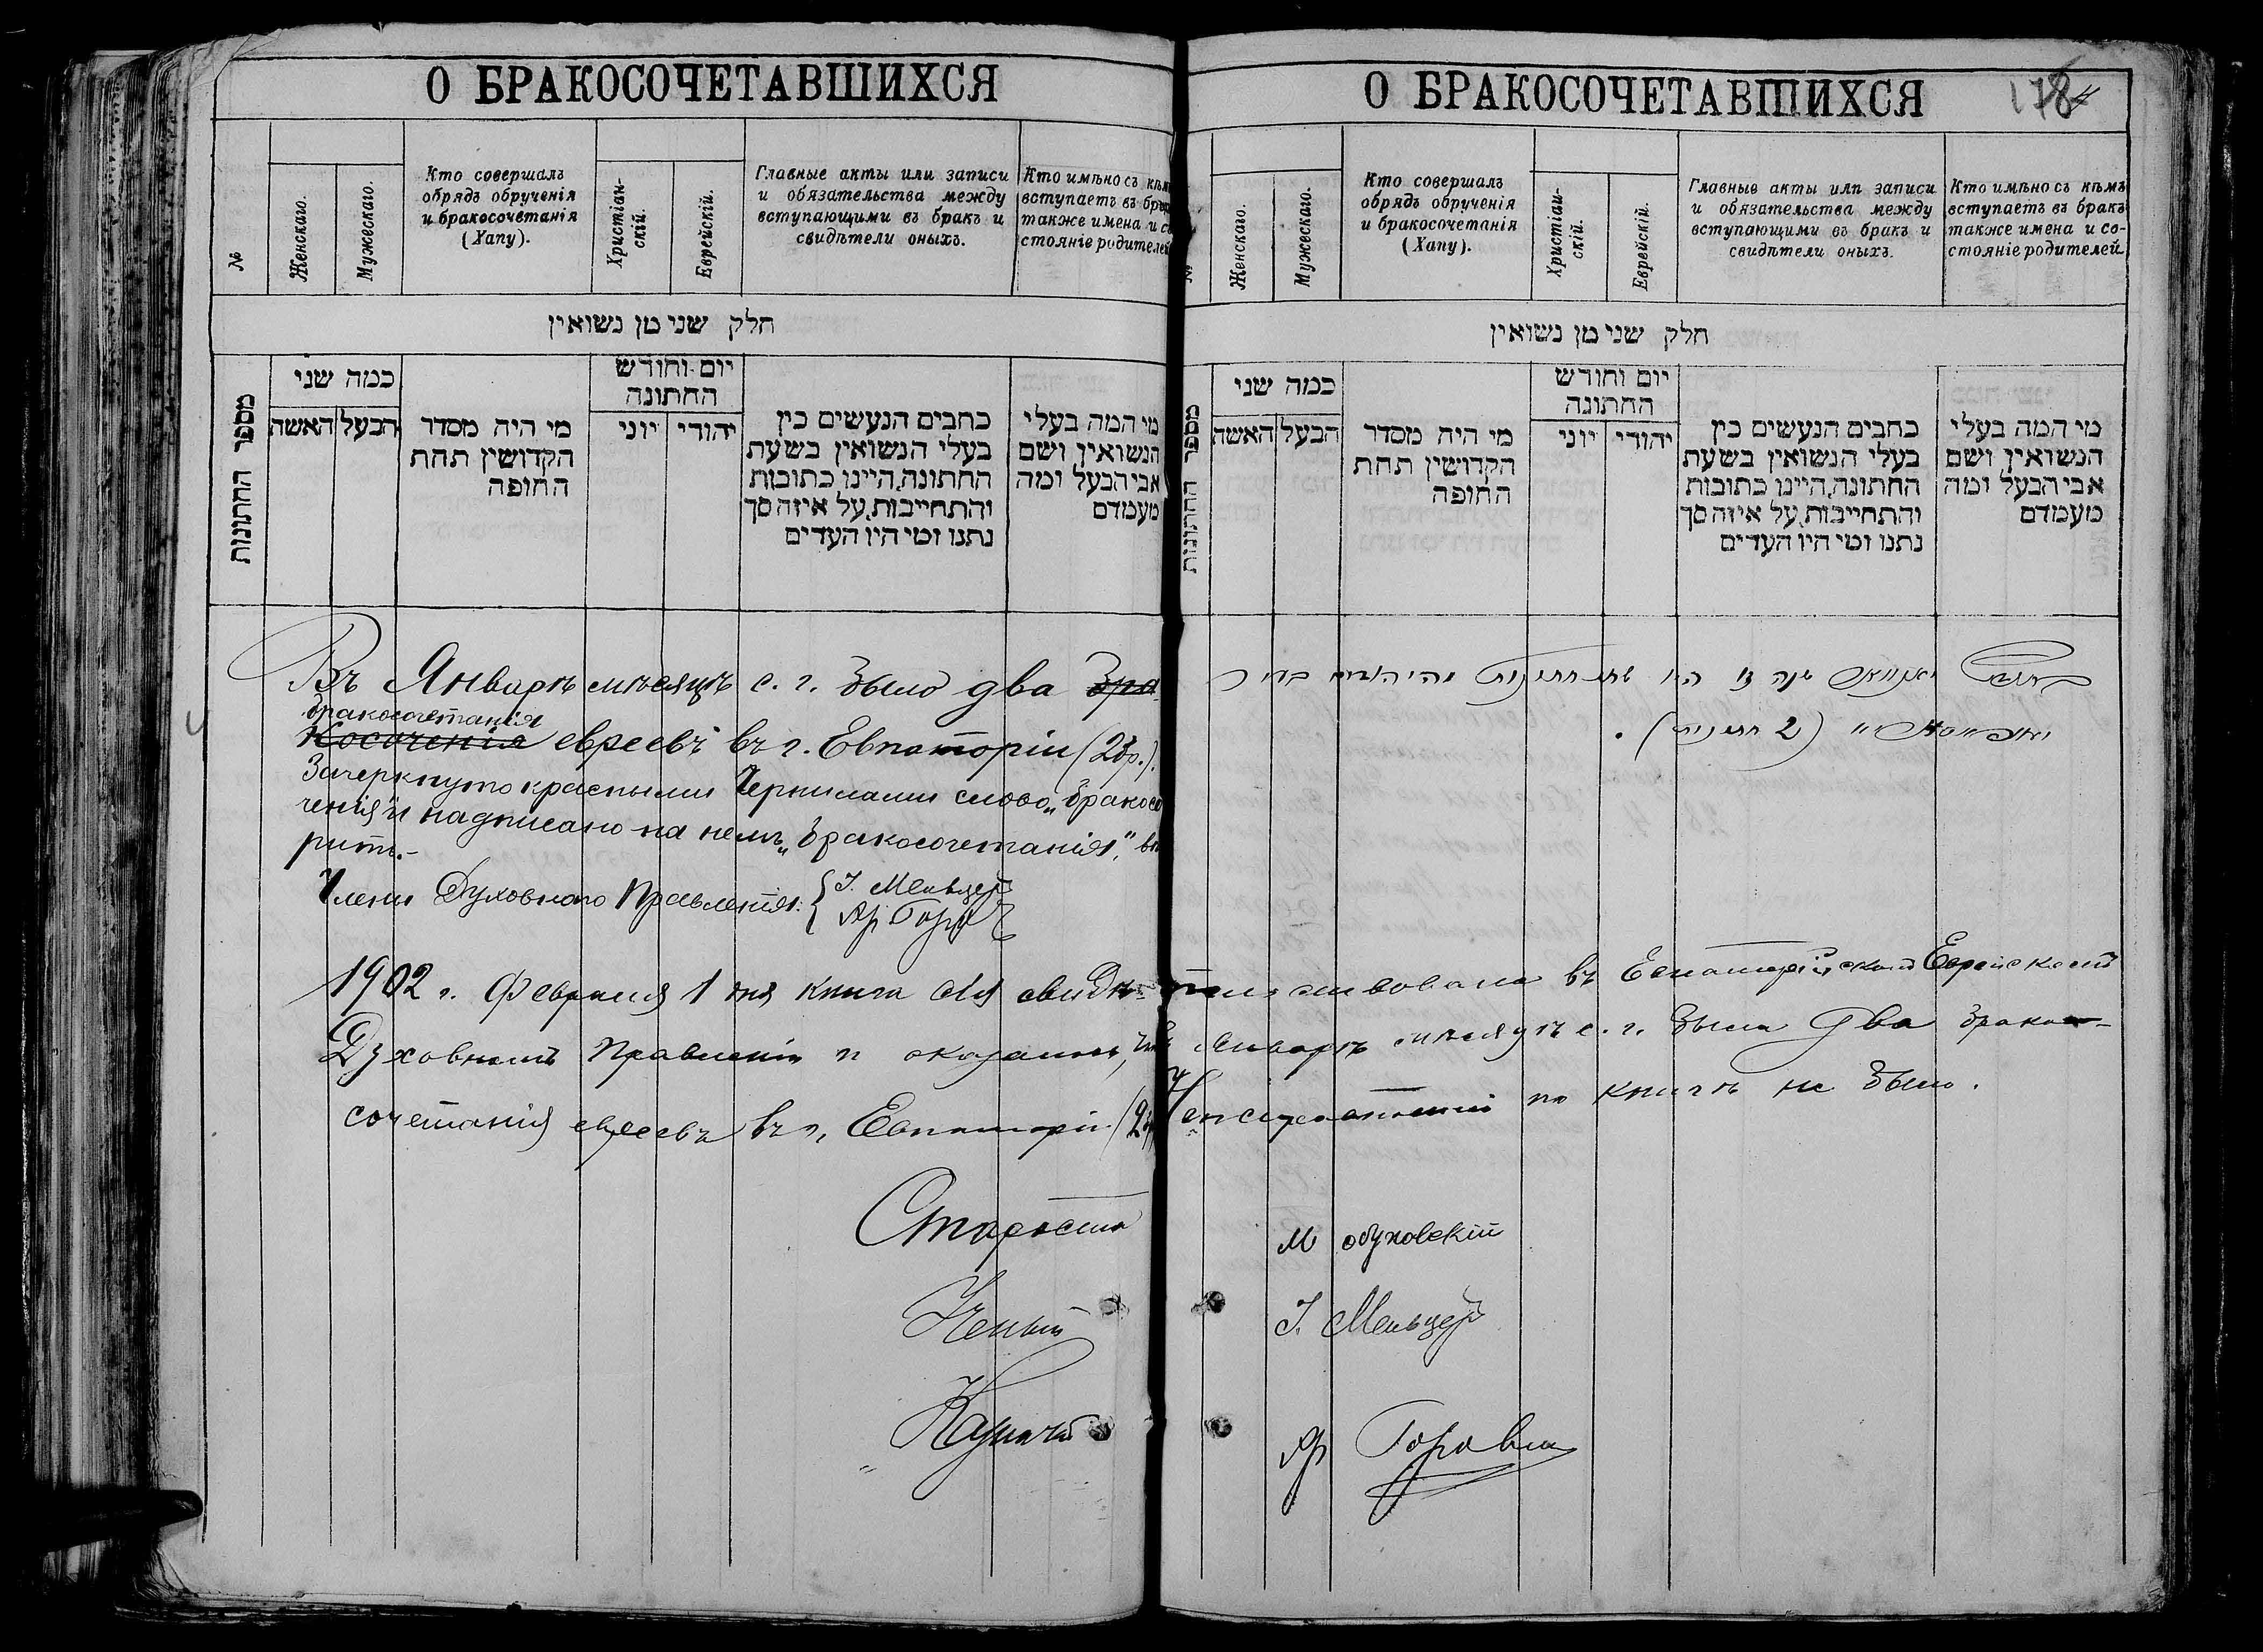 О БРАКОСОЧЕТАВШИХСЯ
№
Женскаго.
Мужескаго.
Кто совершалъ
обрядъ обрученія
и бракосочетанія
(Хапу).
Христіан-
скій.
Еврейскій.
Главные акты или записи
и обязательства между
вступающими въ бракъ и
свидѣтели оныхъ.
Кто имѣно съ кѣм
вступаетъ въ бра
также имена и с
стояніе родителей
חלק שני מן נשואין
מספר החתונות
כמה שני
האשה
הבעל
מי היה מסדר
הקדושין תחת
החופה
יום וחודש
החתונה
יוני
יהודי
כתבים הנעשים בין
בעלי הנשואין בשעת
החתונה, היינו כתובות
והתחייבות, על איזה סך
נתנו ומי היו העדים
מי המה בעלי
הנשואין ושם
אבי הבעל ומה
מעמדם
Въ Январѣ мѣсяцѣ с. г. было два бра-
бракосочетанія
косоченія евреевъ въ г. Евпаторіи (2 бр.).
Зачеркнуто красными чернилами слово „бракосо
ченія" и надписано на немъ „бракосочетанія," вѣ
рить.-
Члены Духовнаго Правленія: { І. Мельцер
Яр Гор
1902 г. Февраля 1 дня книга сія свидѣ-
Духовномъ Правленіи и оказалось, что
сочетанія евреевъ въ г. Евпаторіи (2 бр
Староста
Ученый
Казначей
О БРАКОСОЧЕТАВШИХСЯ
178
№
Женскаго.
Мужескаго.
Кто совершалъ
обрядъ обрученія
и бракосочетанія
(Хапу).
Христіан-
скій.
Еврейскій.
Главные акты или записи
и обязательства между
вступающими въ бракъ и
свидѣтели оныхъ.
Кто имѣно съ кѣмъ
вступаетъ въ бракъ
также имена и со-
стояніе родителей
חלק שני מן נשואין
מספר החתונות
כמה שני
האשה
הבעל
מי היה מסדר
הקדושין תחת
החופה
יום וחודש
החתונה
יוני
יהודי
כתבים הנעשים בין
בעלי הנשואין בשעת
החתונה, היינו כתובות
והתחייבות, על איזה סך
נתנו ומי היו העדים
מי המה בעלי
הנשואין ושם
אבי הבעל ומה
מעמדם
שנה זו היו שתי חתונות
(2 חתונות).
тельствована въ Евпаторійскомъ Еврейскомъ
въ Январѣ мѣсяцѣ с. г. были два брако-
Упсчисленій по книгѣ не было.
М Обуховскій
І. Мельцер
Яр Горовиц